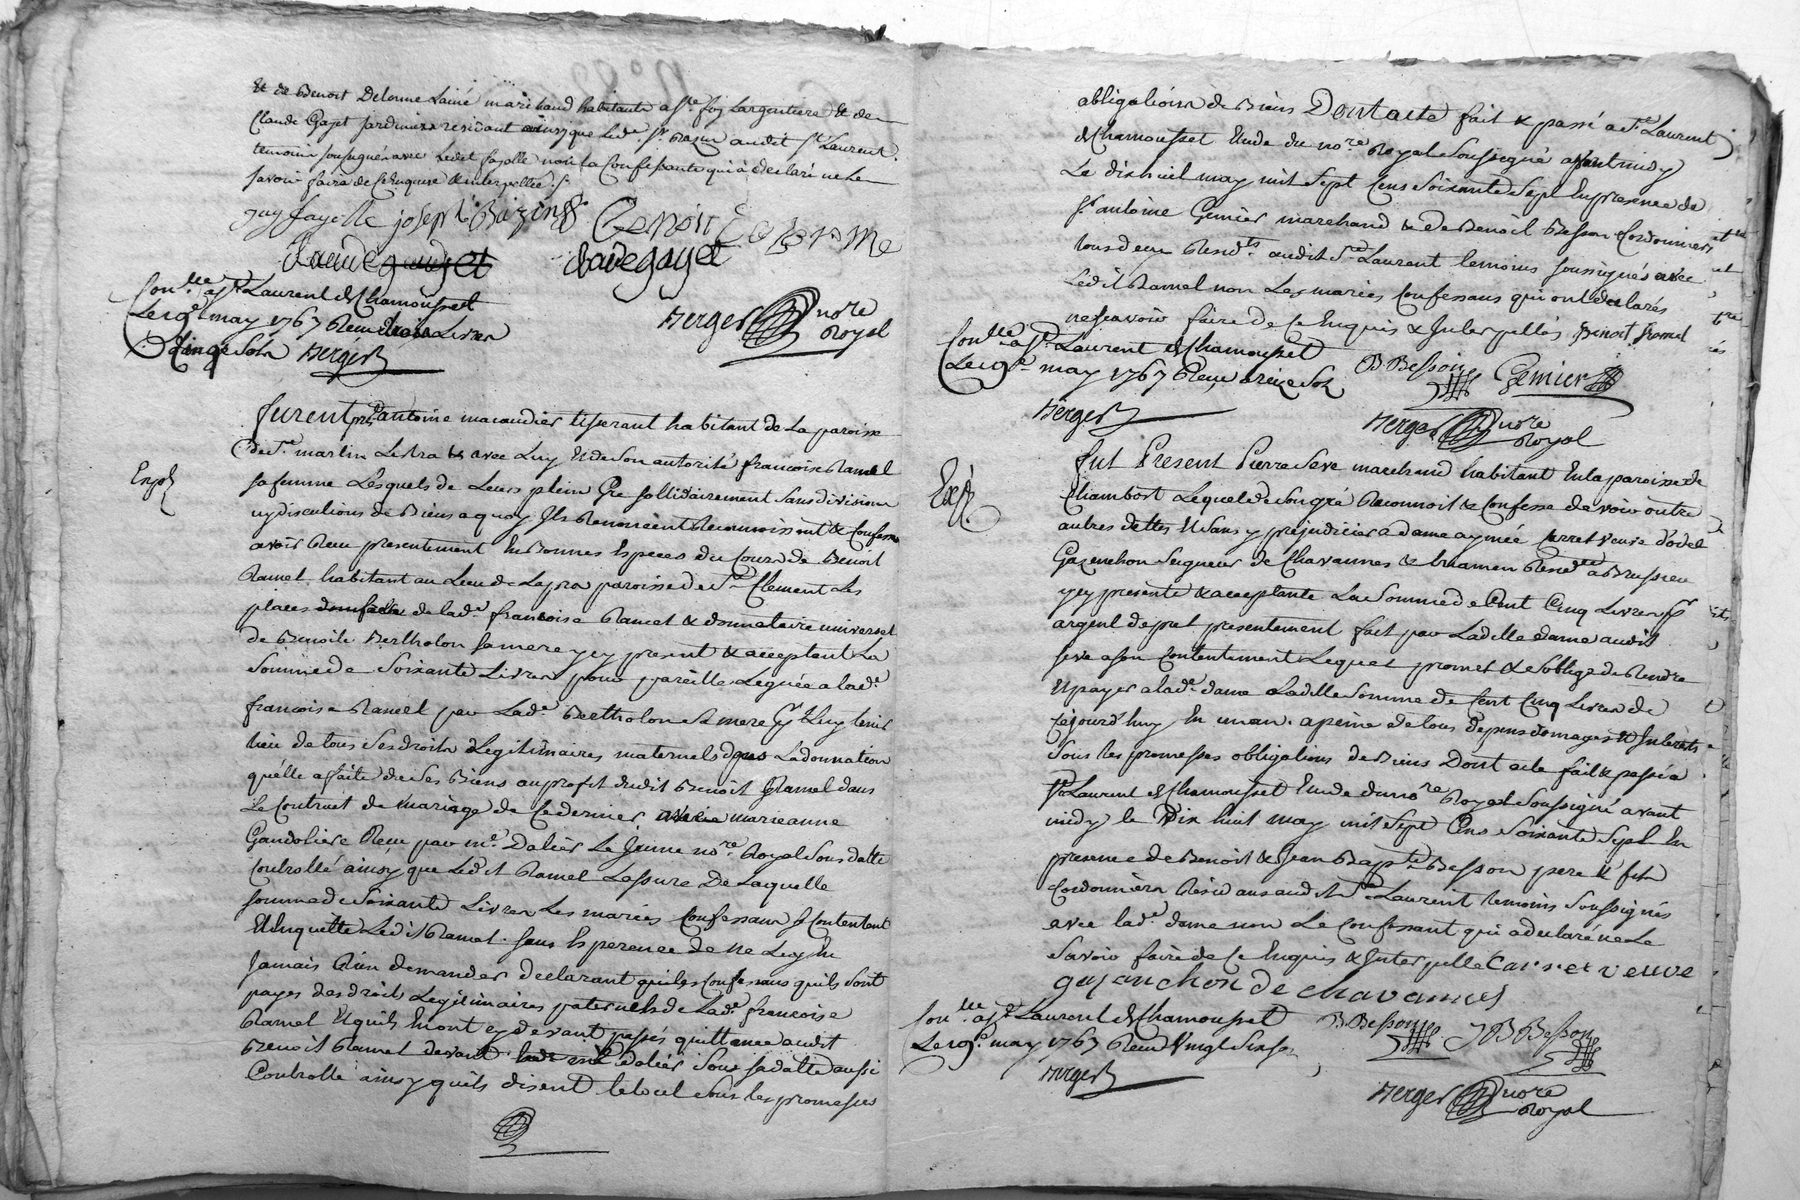 Et de Benoit Delorme Lainé marchand habitants a ste foy Largentiere & de
Claude Gayet Jardinier residant ainsy que Led. Sr. Bazin audit St Laurent
temoins soussignés avec Ledit fayolle non La Confessante qui à declaré ne Le
savoir faire de ce Enquise & interpellée
guy fayolle joseph Bazin Benoit Delorme
Claude gayet
Con.lle a St Laurent de Chamousset
Le 19e may 1767 Recu trois Livres
Cinq Sols Berger
Berger nore
Royal
furent pnts antoine macaudier tisserant habitant de La paroisse
de St. martin Lestra & avec Luy Et de son autorité francoise Ramel
Exp
sa femme Lesquels de Leurs plein Gre sollidairement sans division
ny discutions de Biens a quoy Ils Renoncent Reconnoissent & Confessent
avoir Recu presentement En Bonnes Especes du Cours de Benoit
Ramel habitant au Lieu de paroisse de St Clement Les
places de lade francoise Ramel & donnataire universel
de Benoite Bertholon sa mere yey present & acceptant La
Somme de Soixante Livres pour pareille Leguée a lade.
francoise Ramel par Lade. Bertholon sa mere Luy tenir
Lieu de tous ses droits Legitimaires maternels dans La donnation
qu'elle a faite de ses Biens au profit dudit Benoit Ramel dans
Le Contrat de mariage de Ce dernier avec marieanne
Gandoliere Recu par me. Dalier Le Jeune nore. Royal Sous datte
Controllé ainsy que Ledit Ramel Lassure De Laquelle
somme de Soixante Livres Les mariés Confessans se Contentent
Et Enquitte Ledit Ramel sans Esperence de ne Luy En
Jamais Rien demander declarant quils Confessans quils sont
payes des droits Legitimaires paternels de Lade. francoise
Ramel Et quils En ont cy devant passés quittance audit
Benoit Ramel devant led me Dalier Sous sa datte aussi
Controllé ainsy quils disent le tout sous les promesses
abligations de Biens Dont acte fait & passé a St. Laurent
de Chamousset Etude du nore Royal soussigné avant midy
Le dixhuit may mil Sept Cens Soixante Sept En presence de
Sr antoine Genier marchand & de Benoit Besson Cordonnier
tous deux Resids. audit St Laurent temoins soussignés avec
Ledit Ramel non Les mariés Confessans qui ont declarés
ne scavoir faire de Ce Enquis & Interpellés Benoit Ramel
Con.lle a St. Laurent de Chamousset
Le 19e may 1767 Recu treize Sols
B Besson Genier
Berger
Berger nore
Royal
Fut Present Pierre Seve marchand habitant En la paroisse de
Exp.
Chambost Lequel de Son gré Reconnoit & Confesse devoir outre
autres dettes Et Sans y prejudicier a dame aymée Carret veuve d'odet
Gazenchon Seigneur de Chavannes & Resid.te a Brussieu
yey presente & acceptante La Somme de Cent Cinq Livres
argent de pret presentement fait par Ladille dame audit
seve a son Contentement Lequel promet & soblige de Rendre
Et payer a lade. dame Ladille Somme de Cent Cinq Livres de
Cejourd'huy En un an. a peine de tous depens domages & Interets
Sous les promesses obligations de Biens Dont acte fait & passé a
St Laurent de Chamousset Etude du nore Royal Soussigné avant
midy le Dix huit may mil Sept Cens Soixante Sept En
presence de Benoit & Jean Baptte Besson pere & fils
Cordonniers Residans audit St. Laurent temoins Soussignés
avec lade dame non Le Confessant qui a declaré ne Le
Savoir faire de Ce Enquis & Interpellé Carret veuve
gazanchon de chavannes
Con.lle a St Laurent de Chamousset
Le 19e. may 1767 Recu Vingt Six Sols
B. Besson JB Besson
Berger
Berger nore
Royal